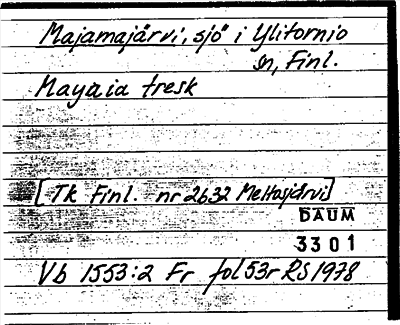 Majamajärvi, sjö i Ylitornio
sn, Finl.
Mayaia tresk
[Tk Finl. nr 2632 Meltosjärvi]
DAUM
3301
Vb 1553:2 Fr fol 53r RS 1978